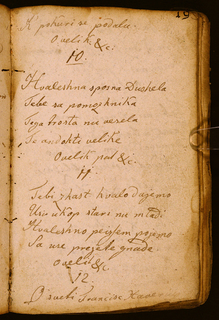 19
K' pokuri se podala.
O velik &c:
10.
Hvaleshna sposna Dushela
Tebe sa pomozhnika
Toga trosta me vesela
Sa andohte velike
O velik pod &c.
11
Tebi zhast hvalo dajemo
Usi ukop stari nu mladi
Hvaleshno peissem pojemo
Sa use projete gnade.
O velik &c
12
O sveti Francisc Xaver